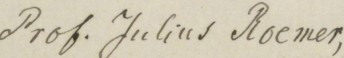 Prof. Julius Roemer,